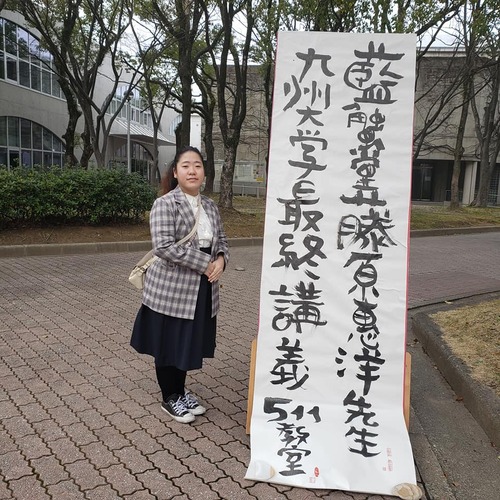 藍觸堂藤原惠洋先生
九州大学最終講義
511教室